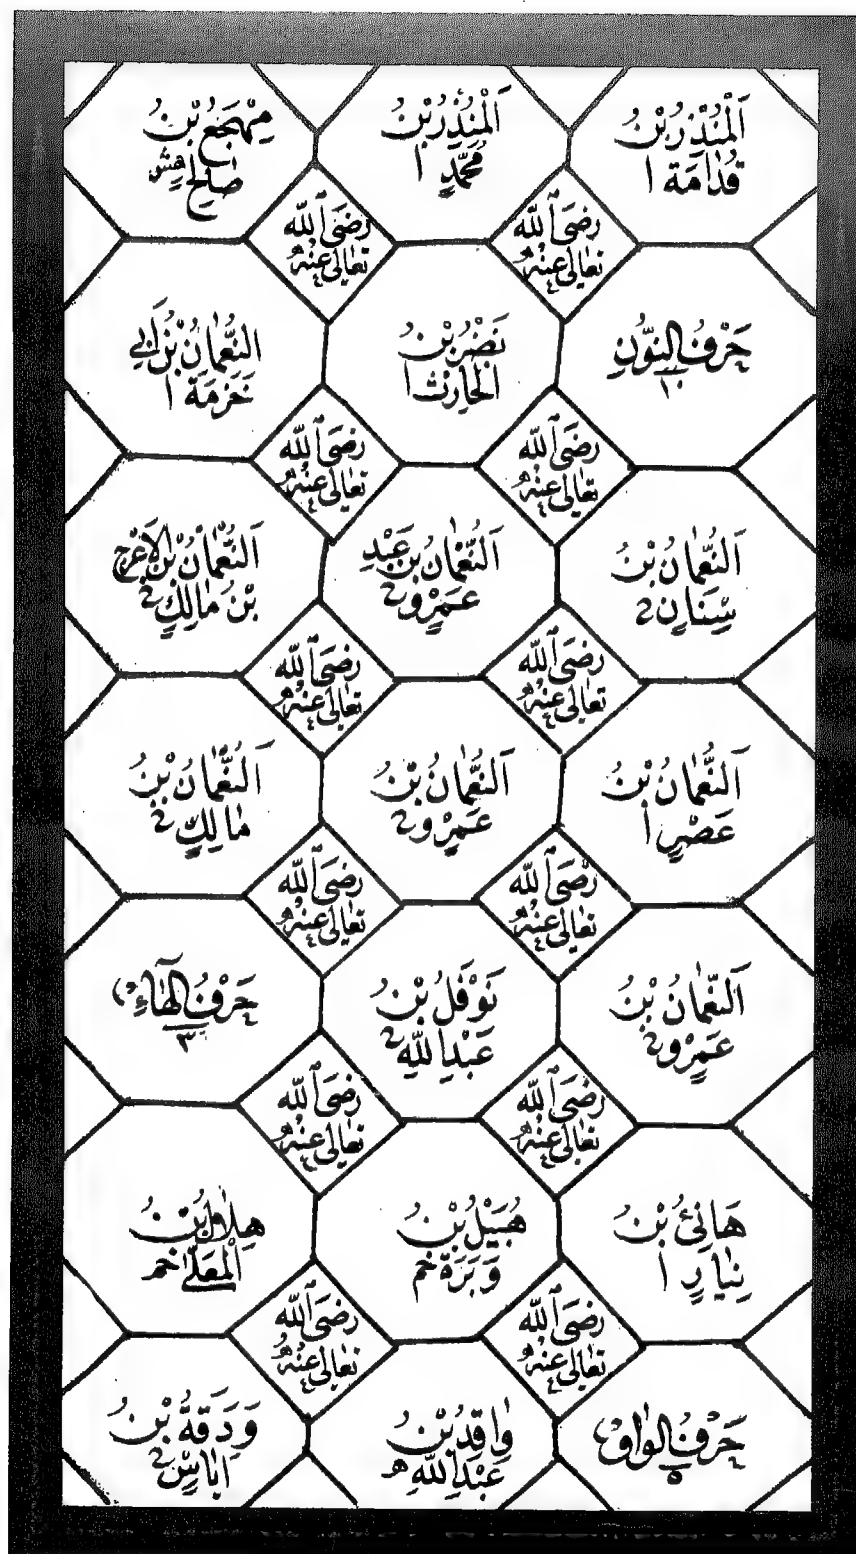 اَلْمُنْذِرُ بْنُ
قُدَامَةَ ا
اَلْمُنْذِرُ بْنُ
مُحَمَّدٍ ا
مِهْجَعُ بْنُ
صَالِحٍ هش
رَضِيَ اللّٰه
تَعَالٰى عَنْهُ
رَضِيَ اللّٰه
تَعَالٰى عَنْهُ
حَرْفُ النُّوْنِ
١٠
نَصْرُ بْنُ
الْحَارِثِ ا
اَلنُّعْمَانُ بْنُ اَبِي
خَزَمَةَ ا
رَضِيَ اللّٰه
تَعَالٰى عَنْهُ
رَضِيَ اللّٰه
تَعَالٰى عَنْهُ
اَلنُّعْمَانُ بْنُ
سِنَانٍ
اَلنُّعْمَانُ بْنُ عَبْدِ
عَمْرٍو
اَلنُّعْمَانُ بْنُ الْاَعْرَجِ
بْنُ مَالِكٍ
رَضِيَ اللّٰه
تَعَالٰى عَنْهُ
رَضِيَ اللّٰه
تَعَالٰى عَنْهُ
اَلنُّعْمَانُ بْنُ
عَصْرٍ ا
اَلنُّعْمَانُ بْنُ
عَمْرٍو
اَلنُّعْمَانُ بْنُ
مَالِكٍ
رَضِيَ اللّٰه
تَعَالٰى عَنْهُ
رَضِيَ اللّٰه
تَعَالٰى عَنْهُ
اَلنُّعْمَانُ بْنُ
عَمْرٍو
نَوْفَلُ بْنُ
عَبْدِ اللّٰهِ
حَرْفُ الْهَاءِ
٣
رَضِيَ اللّٰه
تَعَالٰى عَنْهُ
رَضِيَ اللّٰه
تَعَالٰى عَنْهُ
هَانِئُ بْنُ
نِيَارٍ ا
هُبَيْلُ بْنُ
وَبَرَةَ خم
هِلَالُ بْنُ
الْمُعَلّٰى خم
رَضِيَ اللّٰه
تَعَالٰى عَنْهُ
رَضِيَ اللّٰه
تَعَالٰى عَنْهُ
حَرْفُ الْوَاوِ
٥
وَاقِدُ بْنُ
عَبْدِ اللّٰهِ ھ
وَدَقَةُ بْنُ
اِيَاسٍ